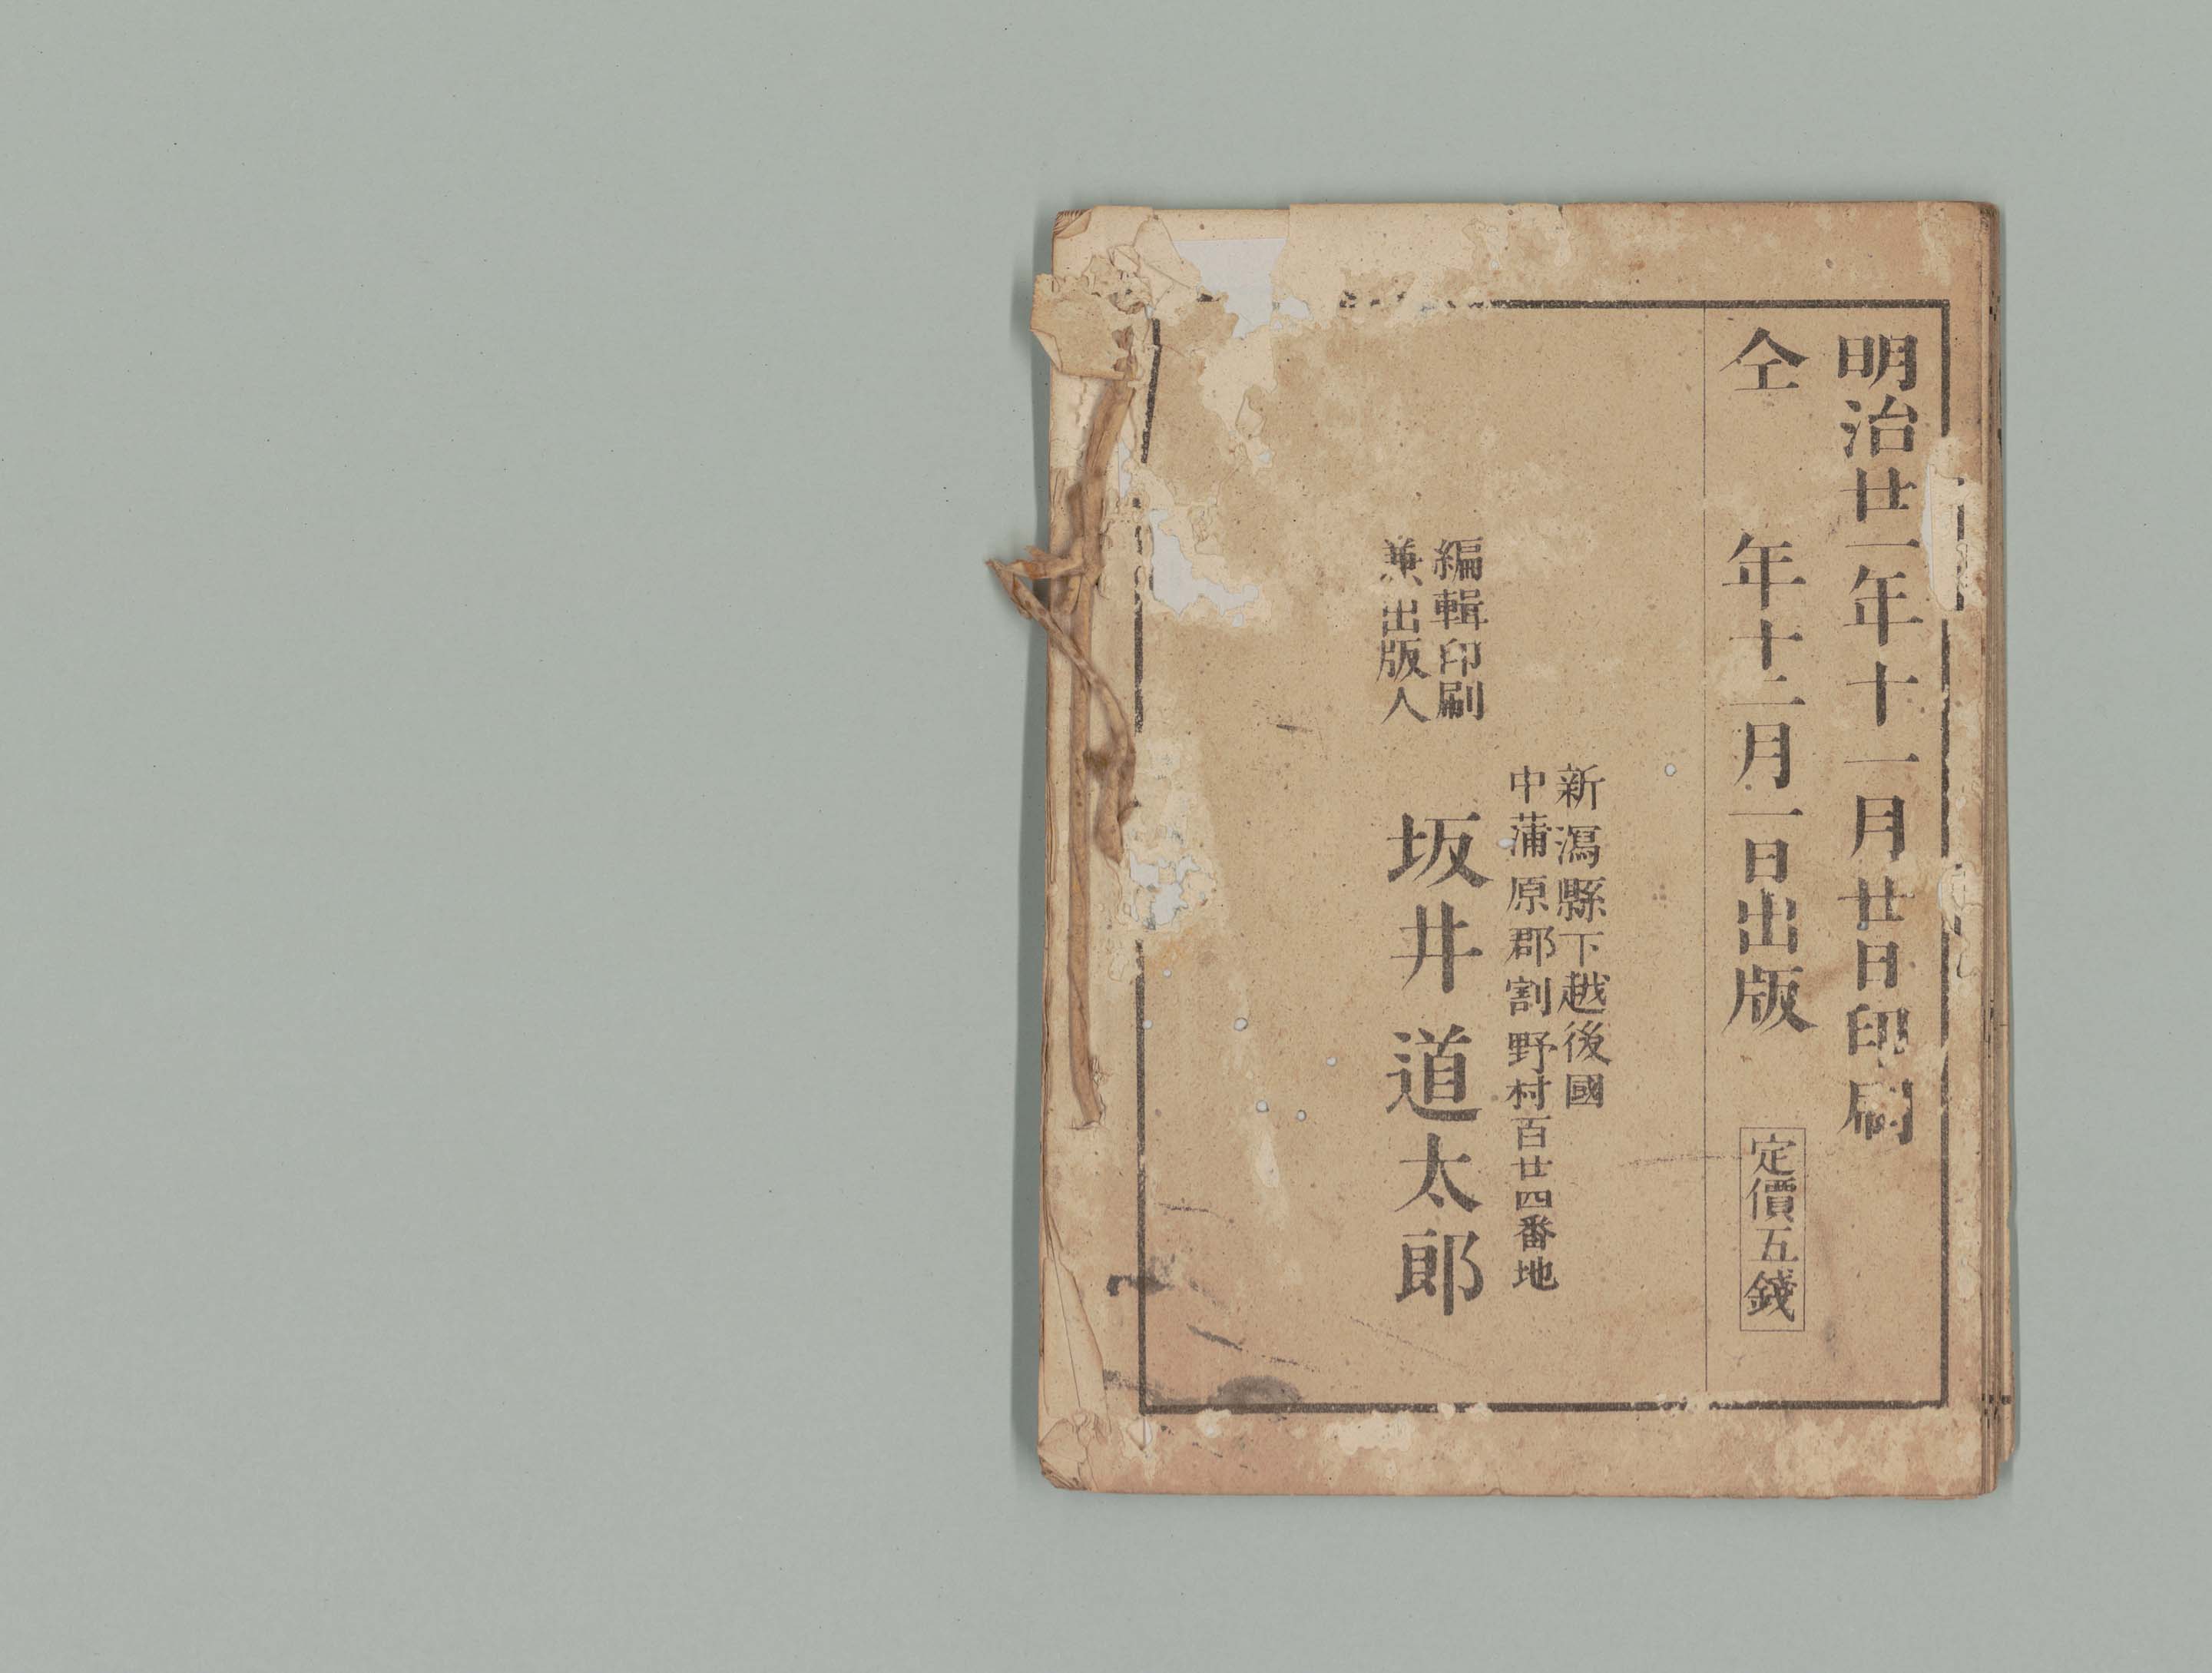 明治廿一年十一月廿日印刷
仝 年十二月一日出版
定價五錢
新潟縣下越後國
中蒲原郡割野村百廿四番地
編輯印刷
兼出版人
坂井道太郎